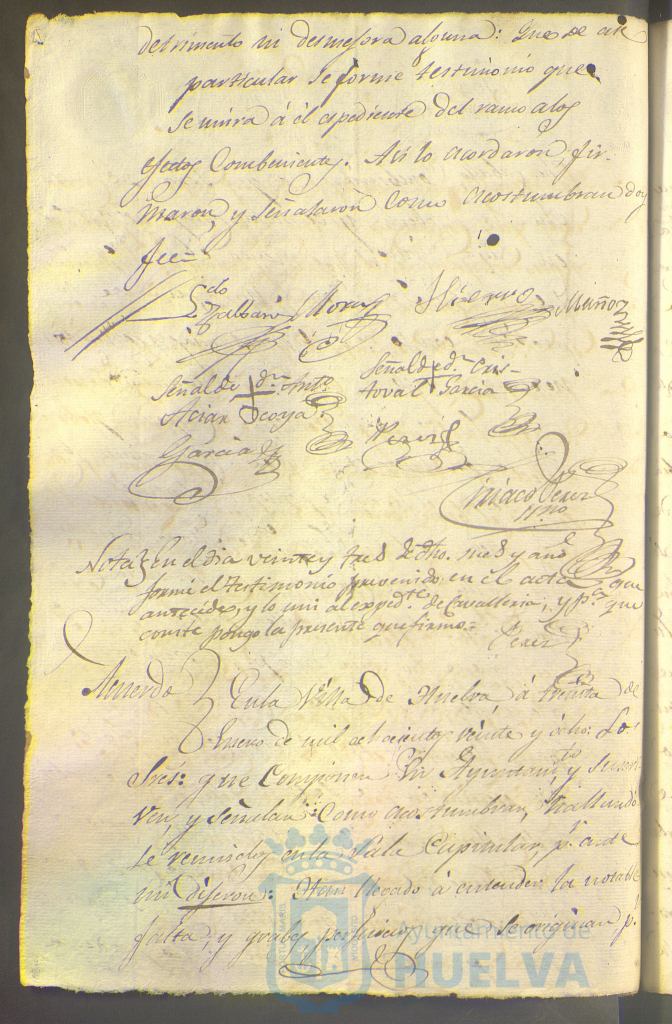 detrimento ni desmejora alguna: Que de este
particular se forme testimonio que
se unira á el espediente del ramo a los
efectos combenientes. Asi lo acordaron, fir-
maron, y señalaron como acostumbran doy
fee=
Ldo
Mora Hierro Muñoz
Señal de + dn. Anto.
Señal de + dn. Cris-
toval Garcia
Garcia Perez
Ciriaco Perez
Nota En el dia veinte y tres de dho. mes y año
formé el testimonio prevenido en el acta que
antecede, y lo uni al expedte. de Cavalleria, y pa. que
conste pongo la presente que firmo=
Perez
Acuerdo En la Villa de Huelva á treinta de
Enero de mil ochocientos veinte y ocho: Los
Sres: que componen su Ayuntamto. y suscri-
ven, y señalan: como acostumbran, hallando-
se reunidos en la Sala Capitular, pr. ante
mi dijeron: Han llegado á entender la notable
falta, y graves perjuicios que se originan pr.
Ayuntamiento de
HUELVA